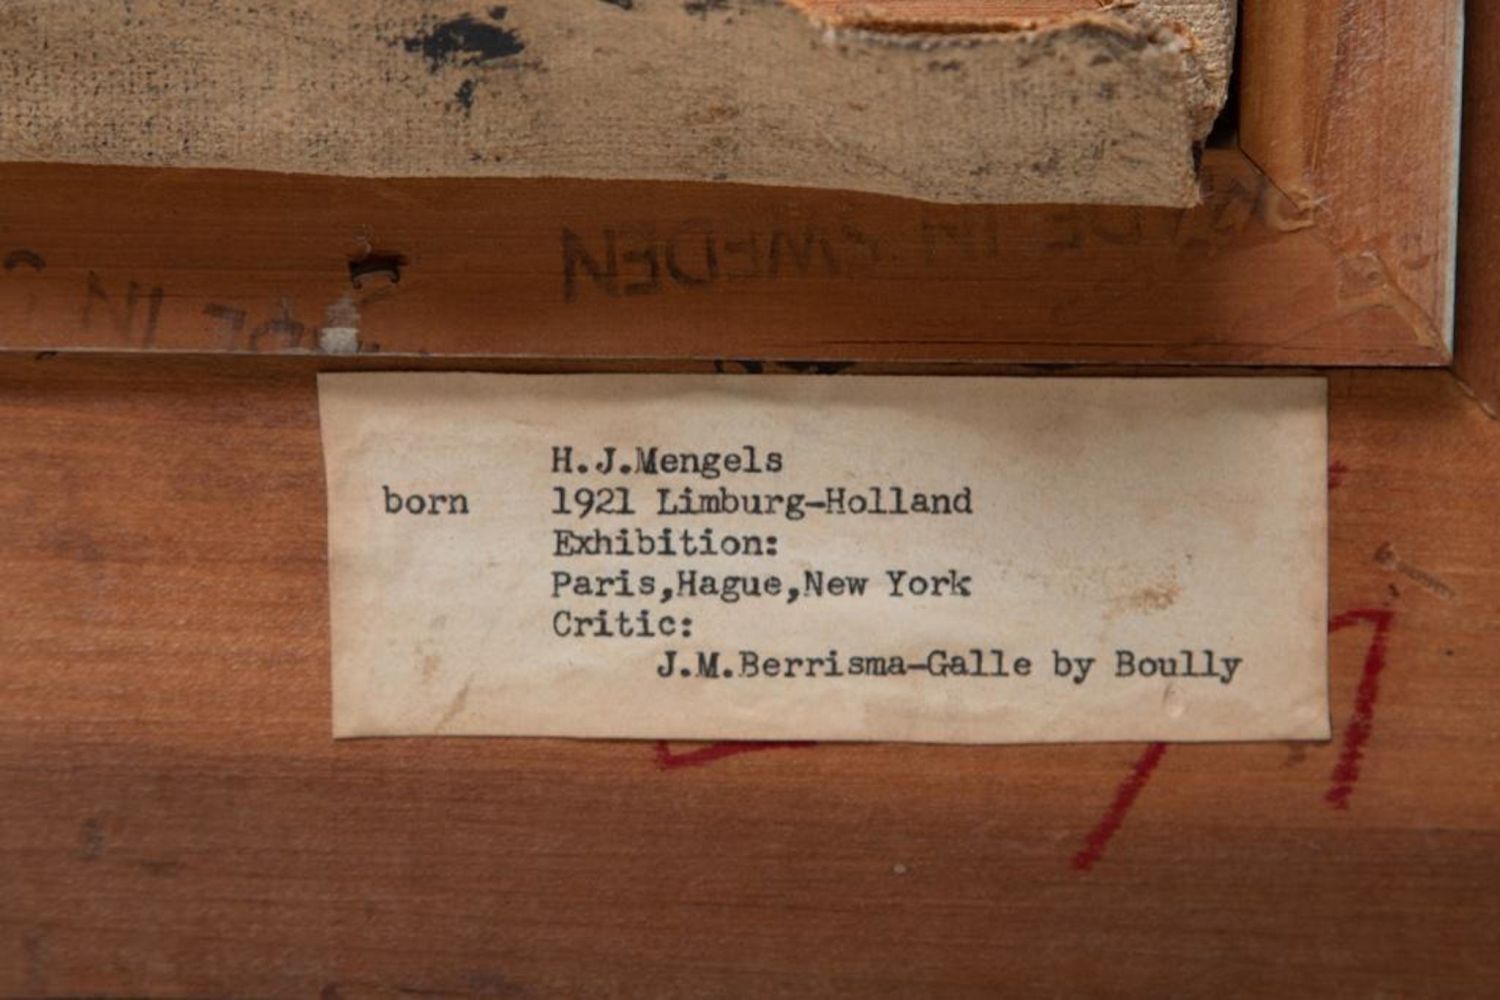 MADE IN SWEDEN
MADE IN
H.J.Mengels
born 1921 Limburg-Holland
Exhibition:
Paris,Hague,New York
Critic:
J.M.Berrisma-Galle by Boully